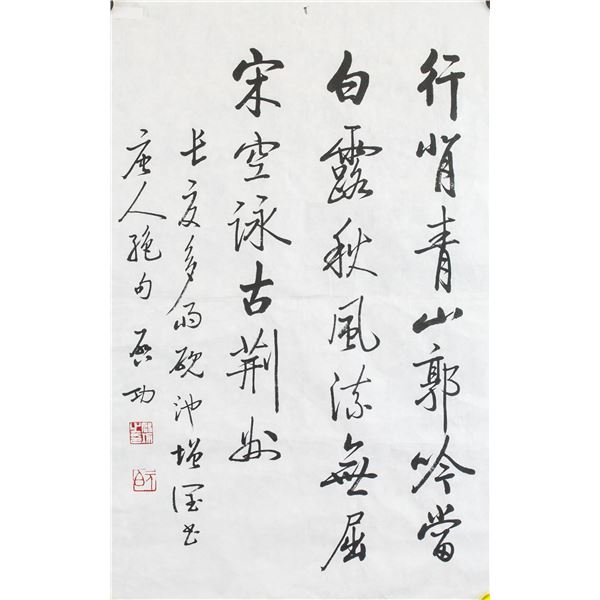 行背青山郭吟當
白露秋風流無屈
宋空詠古荊州
長夏多雨硯池增潤書
唐人絕句 啓功
元白